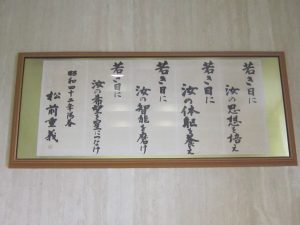 若き日に
汝の思想を培え
若き日に
汝の体躯を養え
若き日に
汝の智能を磨け
若き日に
汝の希望を星につなげ
昭和四十二年
松前重義